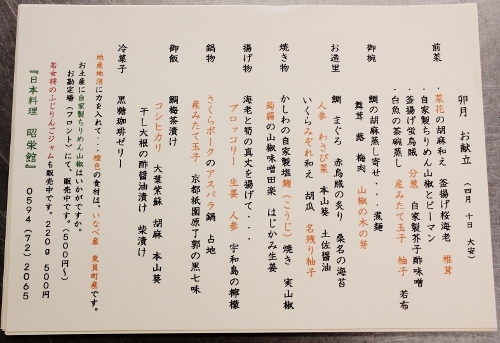 卯月 お献立 (四月 十日 大安)
前菜 ・菜花の胡麻和え 釜揚げ桜海老 椎茸
・自家製ちりめん山椒とピーマン
・釜揚げ蛍烏賊 分葱 自家製芥子酢味噌
・白魚の茶碗蒸し 産みたて玉子 柚子 若布
御椀 鯛の胡麻蒸し寄せ・・・煮麺
舞茸 蕗 梅肉 山椒の木の芽
お造里 鯛 まぐろ 赤烏賊の炙り 桑名の海苔
人参 わさび菜 本山葵 土佐醤油
いくらみぞれ和え 胡瓜 名残り柚子
焼き物 かしわの自家製塩麹(こうじ)焼き 実山椒
蒟蒻の山椒味噌田楽 はじかみ生姜
揚げ物 海老と筍の真丈を揚げて・・・
ブロッコリー 生姜 人参 宇和島の檸檬
鍋物 さくらポークのアスパラ鍋 占地
産みたて玉子 京都祇園原了郭の黒七味
御飯 鯛梅茶漬け
コシヒカリ 大葉紫蘇 胡麻 本山葵
干し大根の酢醤油漬け 柴漬け
冷菓子 黒糖珈琲ゼリー
地産地消に力を入れて・・・橙色の食材は、いなべ産 東員町産です。
お土産に自家製ちりめん山椒はいかがですか。
お勘定場(フロント)にて、販売中です。(500円~)
若女将のふじりんごジャムも販売中です。220g 500円
『日本料理 昭栄館』 0594(72)2065